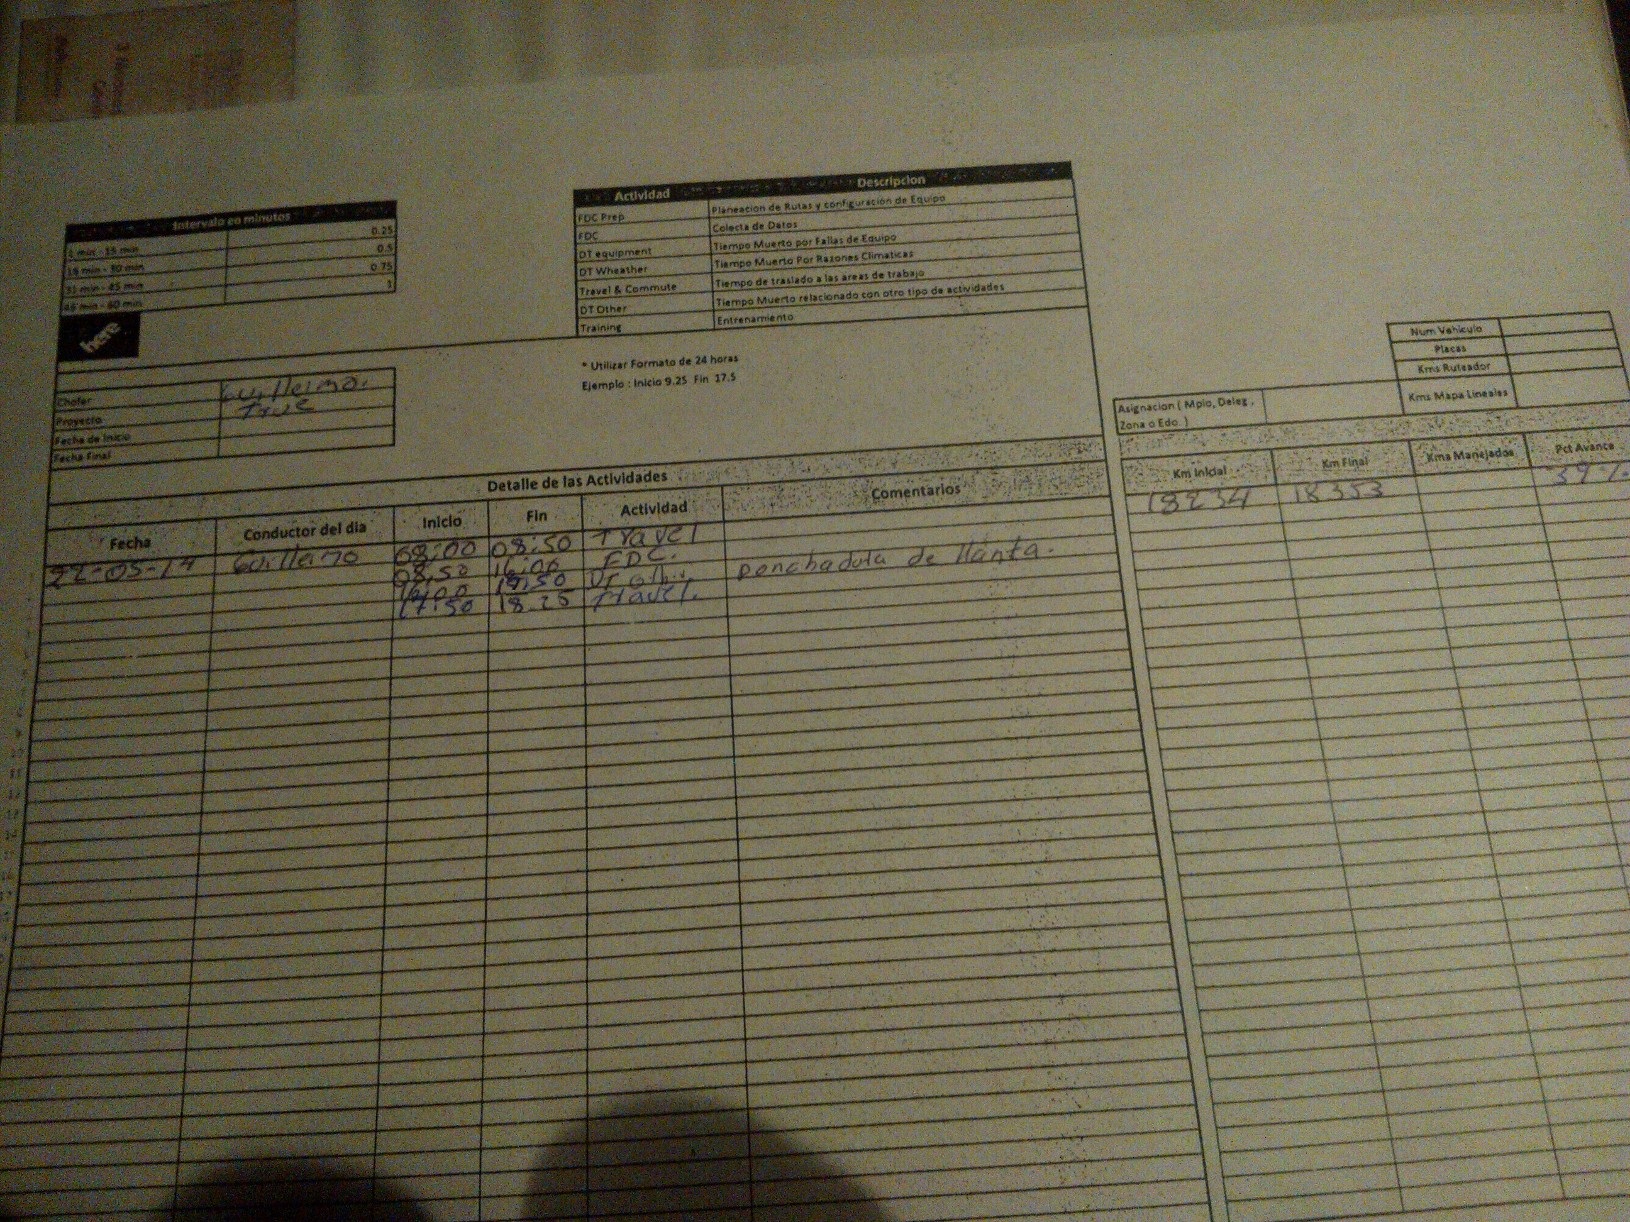 Intervalo en minutos
1 min - 15 min 0.25
16 min - 30 min 0.5
31 min - 45 min 0.75
46 min - 60 min 1
here
Actividad Descripcion
FDC Prep Planeacion de Rutas y configuracion de Equipo
FDC Colecta de Datos
DT equipment Tiempo Muerto por Fallas de Equipo
DT Wheather Tiempo Muerto Por Razones Climaticas
Travel & Commute Tiempo de traslado a las areas de trabajo
DT Other Tiempo Muerto relacionado con otro tipo de actividades
Training Entrenamiento
* Utilizar Formato de 24 horas
Ejemplo : Inicio 9.25 Fin 17.5
Chofer Guillermo.
Proyecto True
Fecha de Inicio
Fecha Final
Num Vehiculo
Placas
Kms Ruteador
Kms Mapa Lineales
Asignacion ( Mpio, Deleg ,
Zona o Edo )
Detalle de las Actividades
Fecha Conductor del dia Inicio Fin Actividad Comentarios Km Inicial Km Final Kms Manejados Pct Avance
22-05-14 08:00 08:50 Travel 18234 18353 39%
08:50 16:00 FDC.
16:00 ponchadura de llanta.
17:50 18:25 Travel.